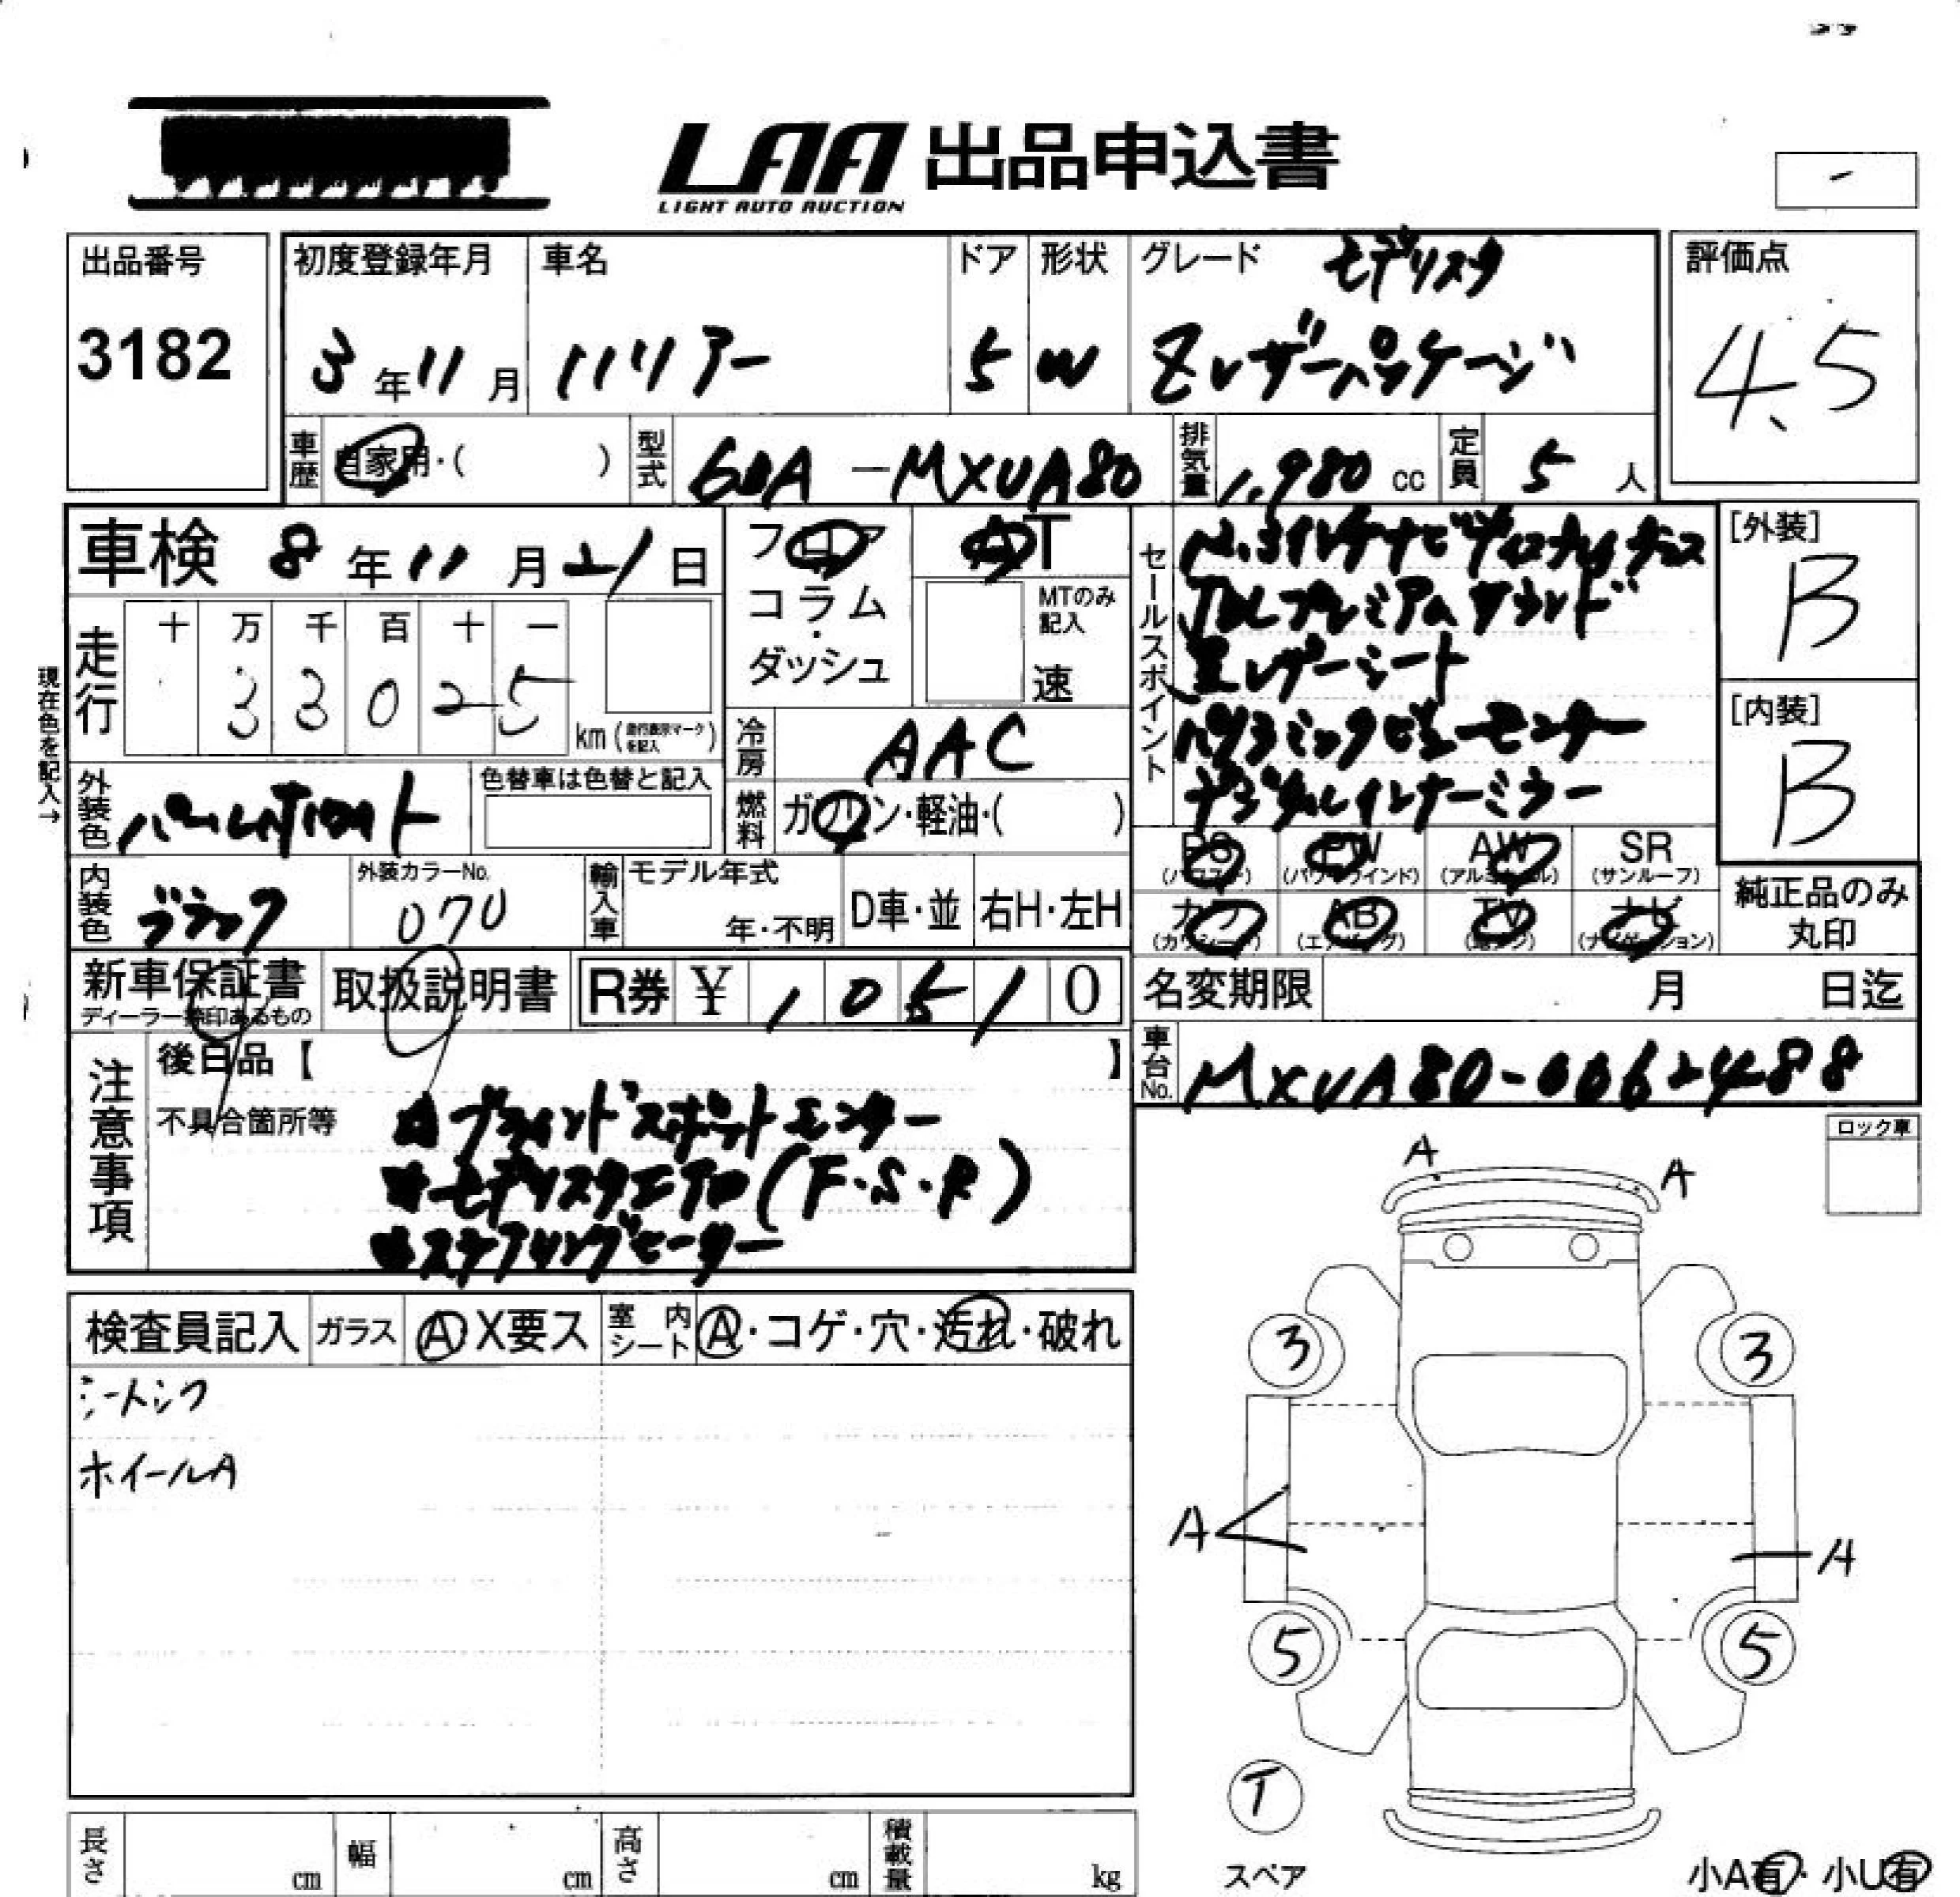 LAA 出品申込書
LIGHT AUTO AUCTION
-
出品番号
3182
初度登録年月
3年11月
車名
ハリアー
ドア
5
形状
W
グレード モデリスタ
Zレザーパッケージ
評価点
4.5
車歴 自家用・( )
型式 6BA-MXUA80
排気量 1,980 cc
定員 5人
車検 8年11月21日
フロア
コラム
・
ダッシュ
AT
MTのみ
記入
速
セールスポイント
12.3インチナビ
JBLプレミアムサウンド
黒レザーシート
パノラミックビューモニター
デジタルインナーミラー
[外装]
B
[内装]
B
現在色を記入→
走行
十 万 千 百 十 一
3 3 0 2 5
km(走行表示マークを記入)
冷房 AAC
外装色 パールホワイト
色替車は色替と記入
燃料 ガソリン・軽油・( )
PS
(パワステ)
PW
(パワーウインド)
AW
(アルミホイル)
SR
(サンルーフ)
カワ
(カワシート)
AB
(エアバッグ)
TV
(地デジ)
ナビ
(ナビゲーション)
純正品のみ
丸印
内装色 ブラック
外装カラーNo.
070
輸入車
モデル年式
年・不明
D車・並
右H・左H
新車保証書
ディーラー捺印あるもの
取扱説明書
R券 ¥ 10510
名変期限 月 日迄
車台No. MXUA80-0062488
注意事項
後日品【 】
不具合箇所等
☆ブラインドスポットモニター
☆モデリスタエアロ(F・S・R)
☆ステアリングヒーター
ロック車
検査員記入
ガラス A X要ス
室内シート A・コゲ・穴・汚れ・破れ
シートシワ
ホイールA
A
A
3
3
A
A
5
5
T
スペア
小A有・小U有
長さ cm
幅 cm
高さ cm
積載量 kg